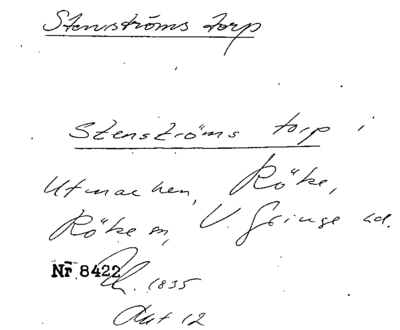 Stenströms torp
Stenströms torp i
Utmarken, Röke,
Röke sn, V. Göinge hd.
Nr 8422
Uh. 1835
Akt 12